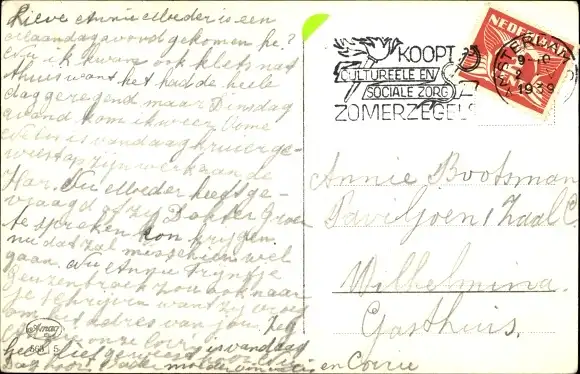 Lieve Annie Moeder is een
Maandagavond gekomen he?
Nu ik kwam ook kletsnat
thuis want het had de heele
dag geregend maar Dinsdag
avond kom ik weer Oome
is vandaag kruier ge-
weest op zijn verkaande
Kar. Nu Moeder heeft ge-
vraagd of zij Dokter
te spreken kon krijgen
nu dat zal misschien wel
gaan. Nu Annie Tryntje
Beuzenbroek zou ook naar
je schrijven want zij vroeg
om het adres van jou. Zeg
onze Corrie is vandaag
heel
Dag hoor!
en Corrie
Amag
568 5
KOOPT
CULTUREELE EN
SOCIALE ZORG
ZOMERZEGELS
NEDERLAND
AMSTERDAM
1939
Annie Bootsman
Paviljoen 1 Zaal C
Wilhelmina
Gasthuis.